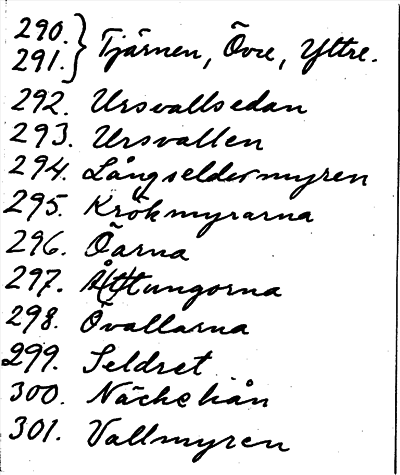 290. } Tjärnen, Övre, Yttre.
291.
292. Ursvallsedan
293. Ursvallen
294. Långseldermyren
295. Krökmyrarna
296. Öarna
297. Å(t)tungorna
298. Övallarna
299. Seldret
300.
301. Vallmyren